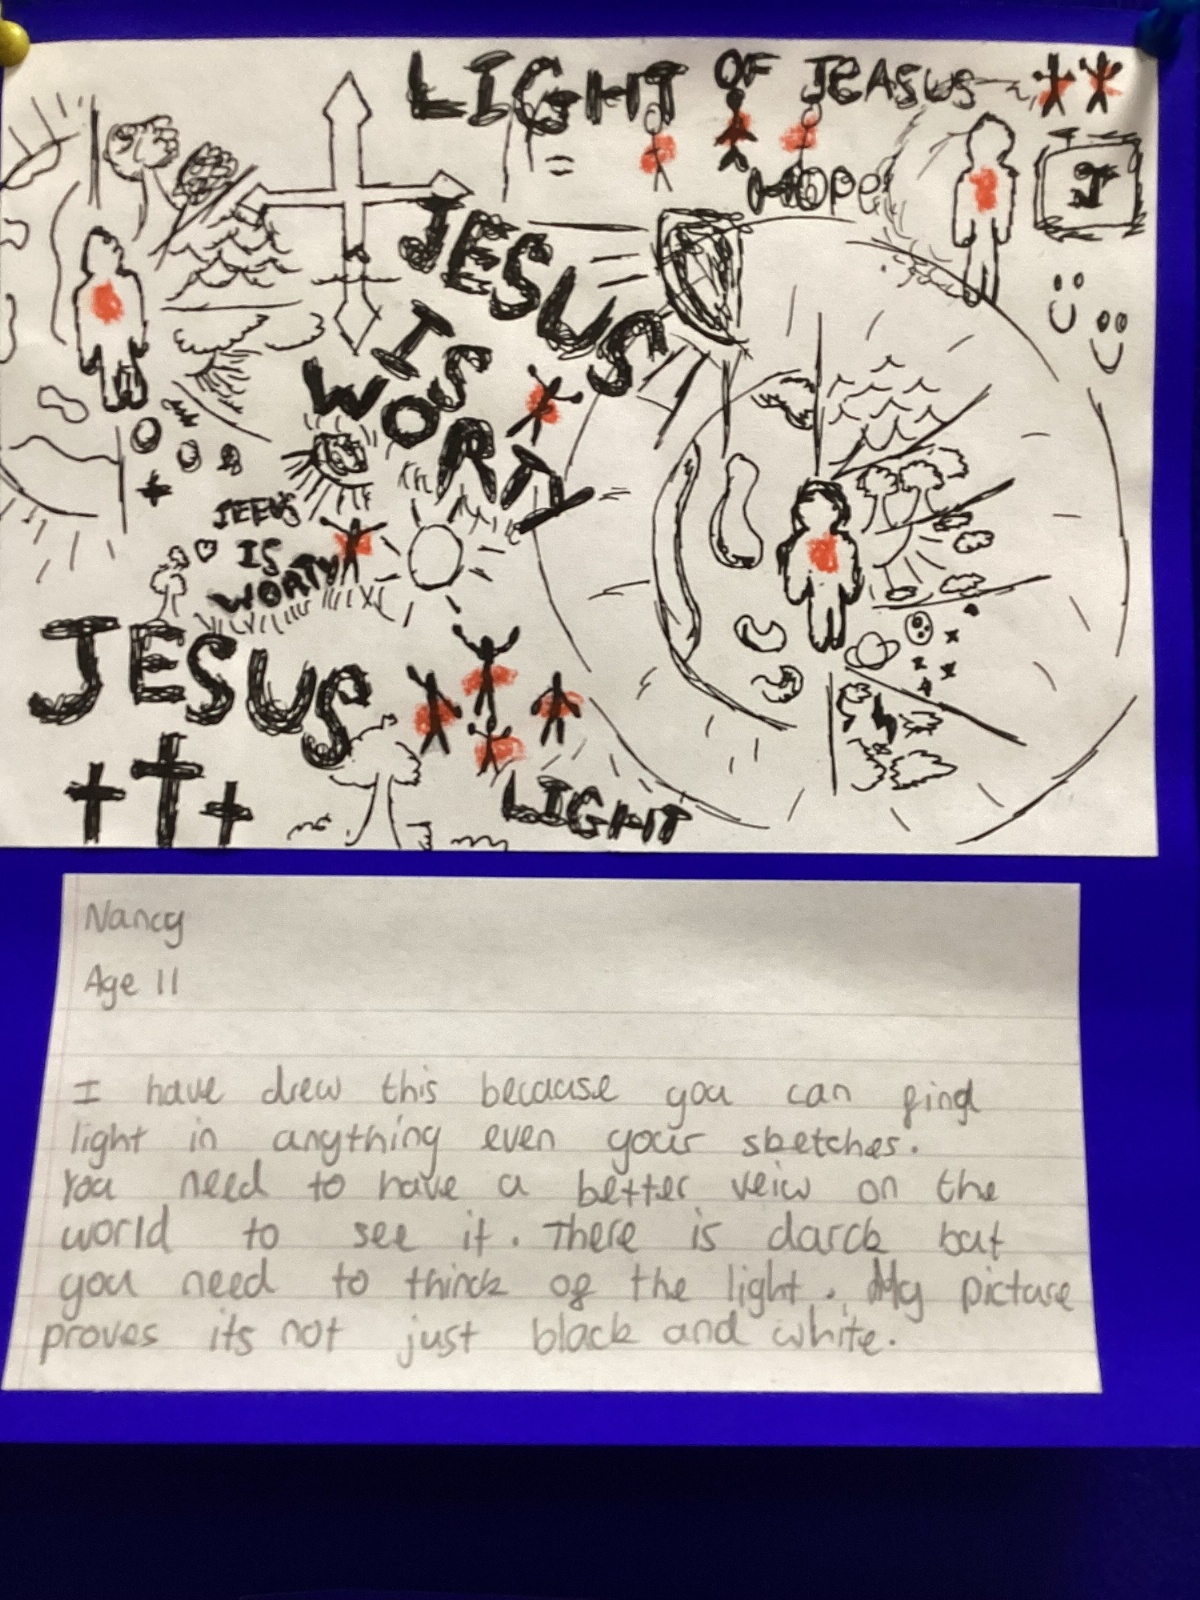 LIGHT OF JEASUS
HOPE
J
JESUS
IS
WORTY
JEEUS
IS
WORTY
JESUS
LIGHT
Nancy
Age 11
I have drew this because you can find
light in anything even your sketches.
You need to have a better veiw on the
world to see it. There is darck but
you need to thinck of the light. My picture
proves its not just black and white.